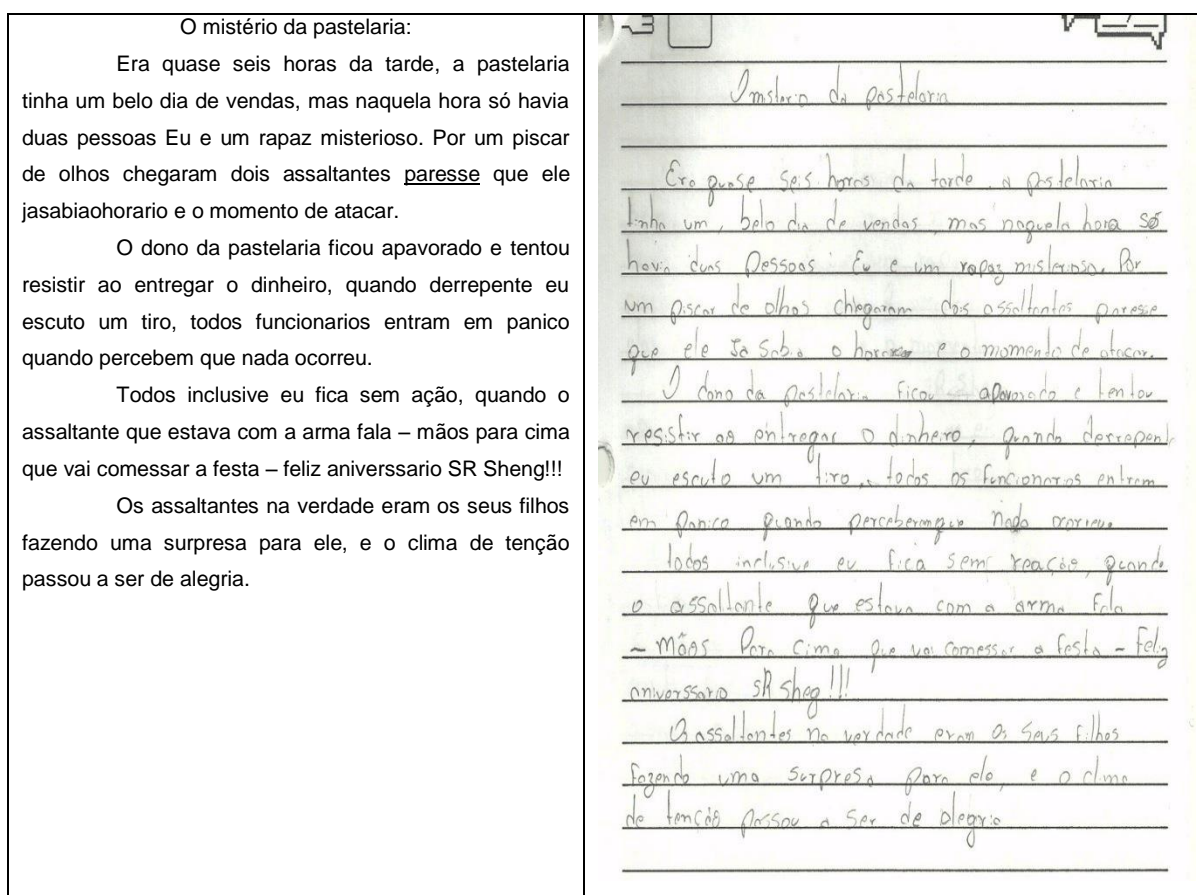 O mistério da pastelaria:
Era quase seis horas da tarde, a pastelaria
tinha um belo dia de vendas, mas naquela hora só havia
duas pessoas Eu e um rapaz misterioso. Por um piscar
de olhos chegaram dois assaltantes paresse que ele
jasabiaohorario e o momento de atacar.
O dono da pastelaria ficou apavorado e tentou
resistir ao entregar o dinheiro, quando derrepente eu
escuto um tiro, todos funcionarios entram em panico
quando percebem que nada ocorreu.
Todos inclusive eu fica sem ação, quando o
assaltante que estava com a arma fala – mãos para cima
que vai comessar a festa – feliz aniverssario SR Sheng!!!
Os assaltantes na verdade eram os seus filhos
fazendo uma surpresa para ele, e o clima de tenção
passou a ser de alegria.
O da pastelaria
Era quase seis horas da tarde, a pastelaria
tinha um, belo dia de vendas, mas naquela hora só
havia duas pessoas Eu e um rapaz misterioso. Por
um piscar de olhos chegaram dois assaltantes paresse
que ele ja sabia o e o momento de atacar.
O dono da pastelaria ficou apavorado e tentou
resistir ao entregar o dinheiro, quando derrepente
eu escuto um tiro, todos os funcionarios entram
em panico quando nada
todos inclusive eu fica sem reação, quando
o assaltante que estava com a arma fala
- mãos para cima que vai comessar a festa - feliz
aniverssario SR Sheg!!!
Os assaltantes na verdade eram os seus filhos
fazendo uma surpresa para ele, e o clima
de tenção passou a ser de alegria